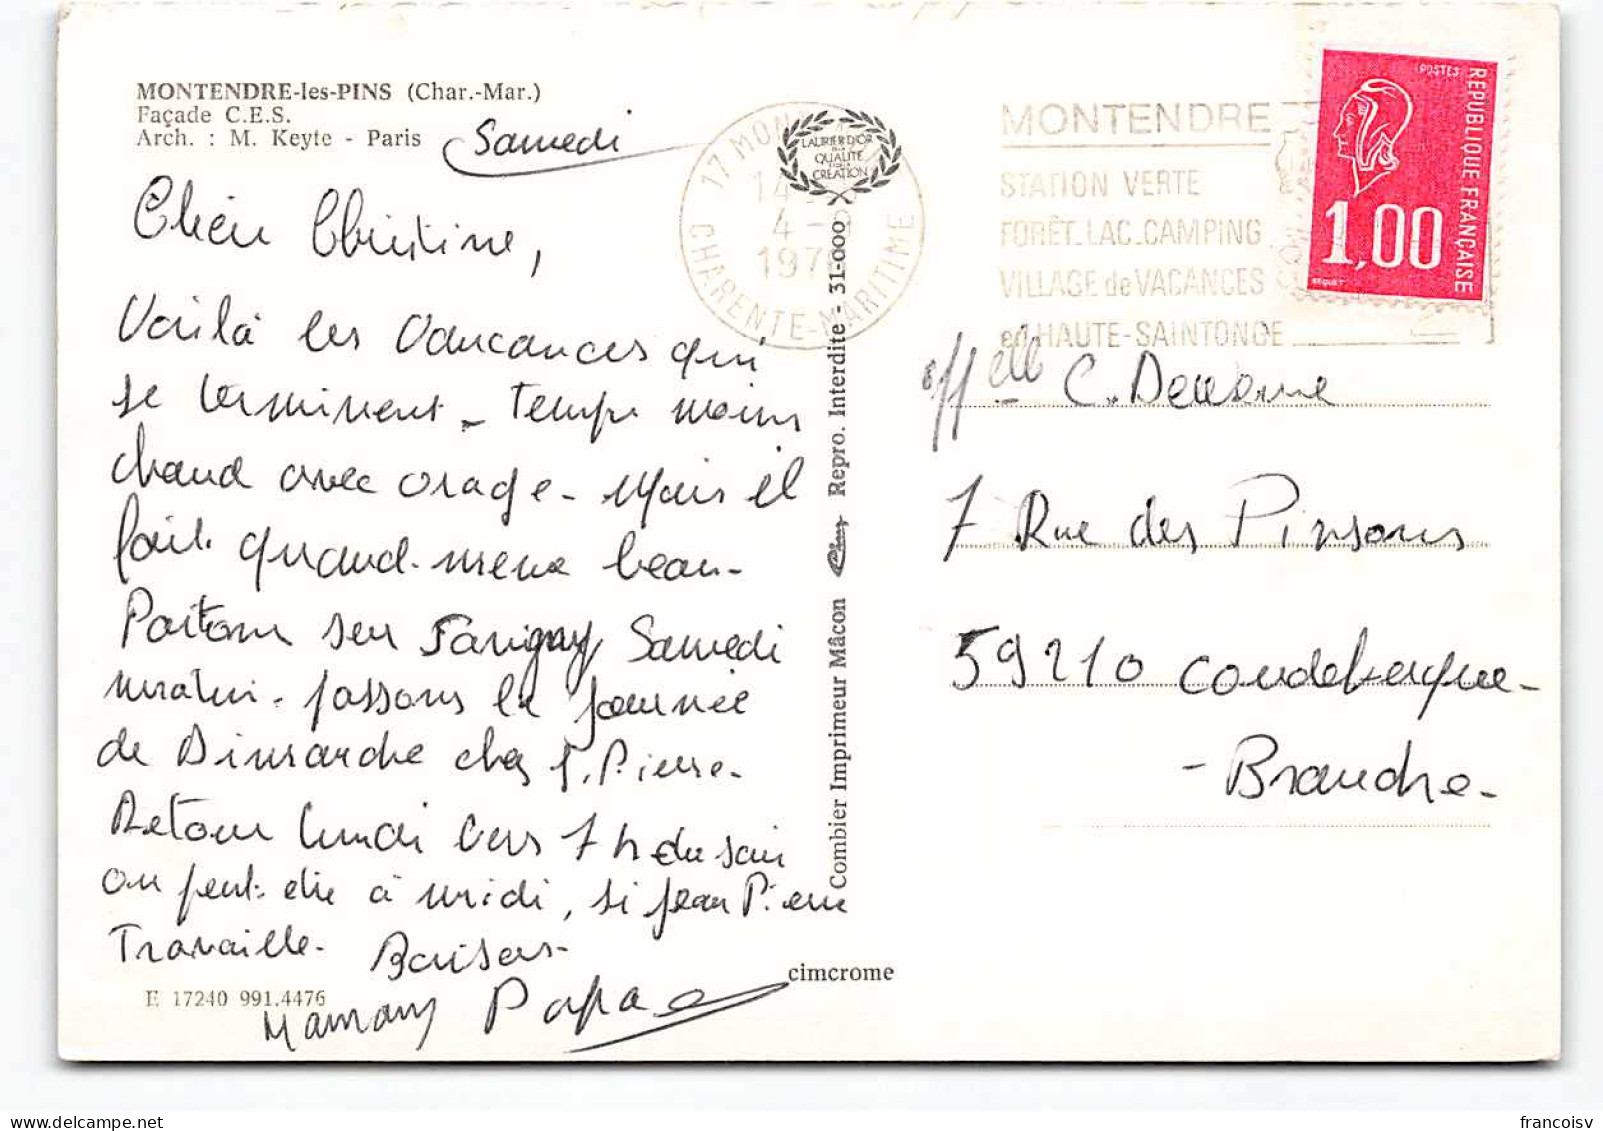 MONTENDRE-les-PINS (Char.-Mar.)
Façade C.E.S.
Arch. : M. Keyte - Paris
Samedi
Chère Christine,
Voilà les Vacances qui
se terminent - Temps moins
chaud avec orage - Mais il
fait quand-même beau -
Partons sur Samedi
matin - passons la journée
de Dimanche chez J. Pierre -
Retour lundi vers 7 h du soir
ou peut-être à midi, si Jean Pierre
Travaille - Baisers -
Maman Papa
E 17240 991.4476
cimcrome
Combier Imprimeur Mâcon Cim Repro. Interdite - 31-000
LAURIER D'OR
DE LA
QUALITÉ
CRÉATION
17 MON
14
4 - 9
197
CHARENTE-MARITIME
MONTENDRE
STATION VERTE
FORÊT_LAC_CAMPING
VILLAGE de VACANCES
en HAUTE-SAINTONGE
POSTES
RÉPUBLIQUE FRANÇAISE
1,00
BEQUET
Melle C.
7 Rue des Pinsons
59210 Coudekerque-
- Branche -
francoisv